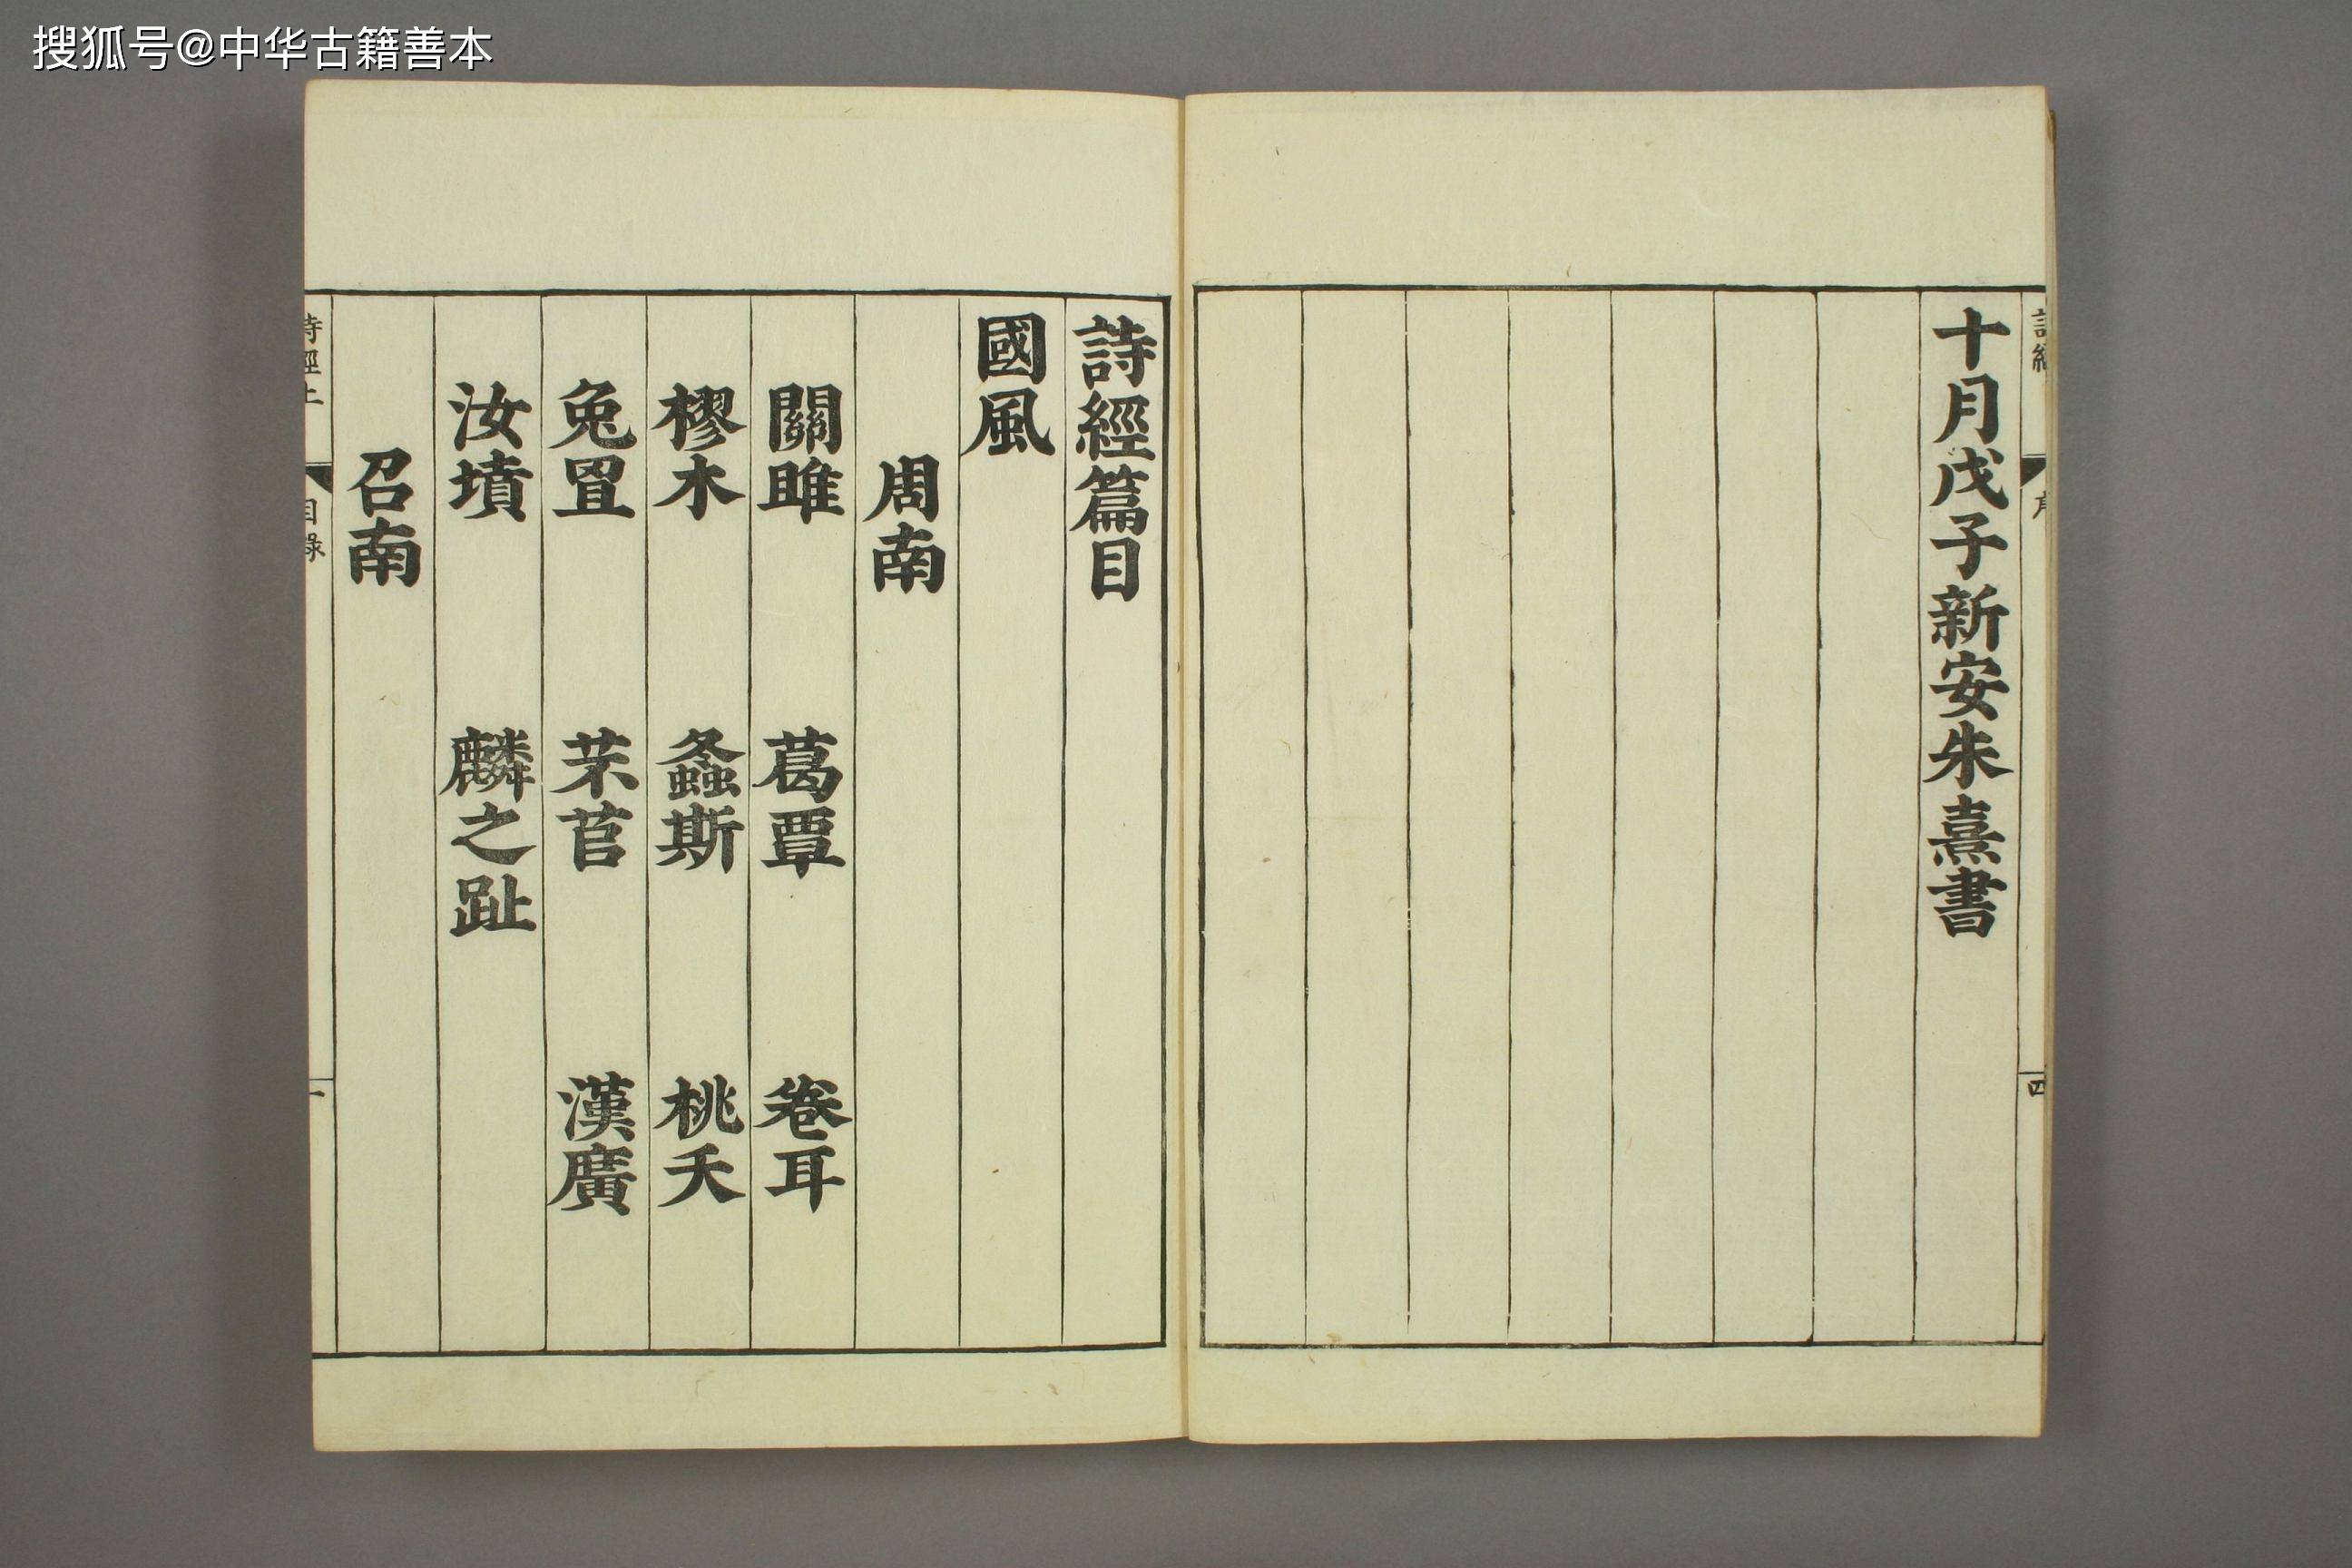 搜狐号@中华古籍善本
十月戊子新安朱熹書
四
詩經篇目
國風
周南
關雎 葛覃 卷耳
樛木 螽斯 桃夭
兔罝 芣苢 漢廣
汝墳 麟之趾
召南
詩經上 目錄 一